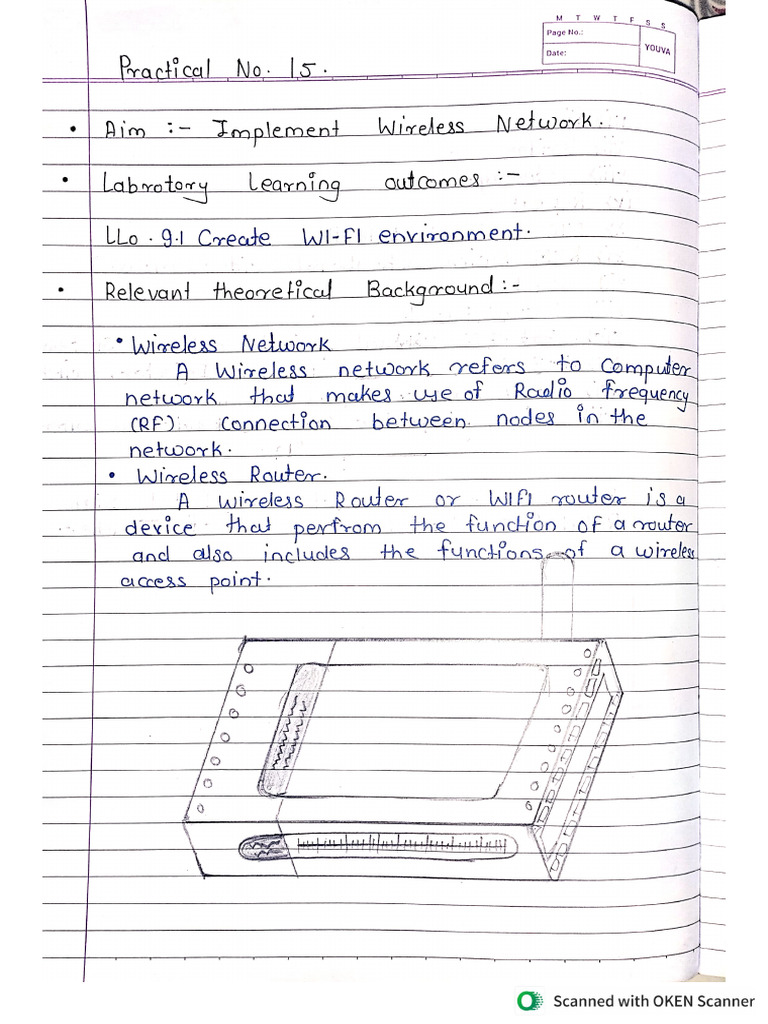 M T W T F S S
Page No.:
Date:
YOUVA
Practical No. 15.
• Aim :- Implement Wireless Network.
• Labrotory Learning outcomes :-
LLO. 9.1 Create WI-FI environment.
• Relevant theoretical Background :-
• Wireless Network
A Wireless network refers to Computer
network that makes use of Radio frequency
(RF) Connection between nodes in the
network.
• Wireless Router.
A Wireless Router or WIFI router is a
device that perfrom the function of a router
and also includes the functions of a wireless
access point.
Scanned with OKEN Scanner